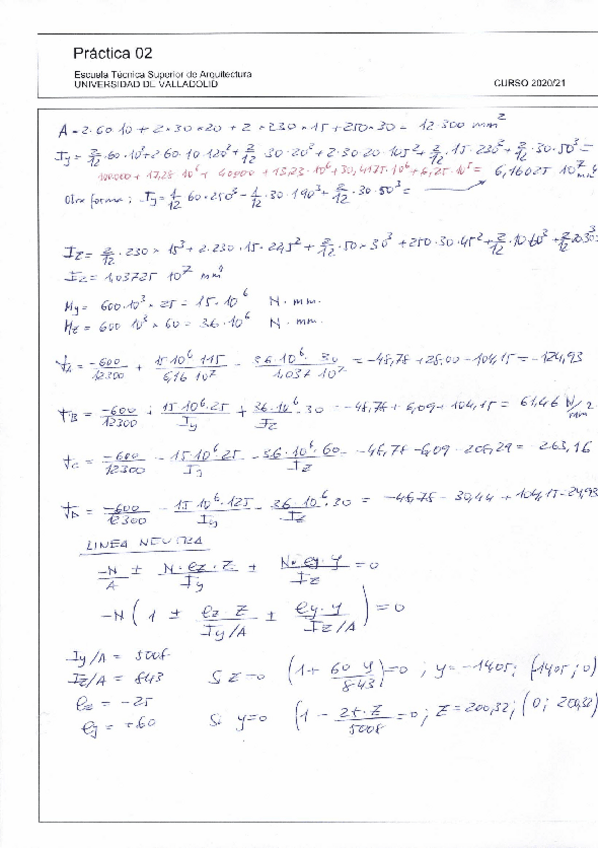 Práctica 02
Escuela Técnica Superior de Arquitectura
UNIVERSIDAD DE VALLADOLID
CURSO 2020/21
A = 2·60·10 + 2×30×20 + 2×230×15 + 250×30 = 12.300 mm²
Iy = 2/12·60·10³ + 2·60·10·120² + 2/12·30·20³ + 2·30·20·105² + 2/12·15·230³ + 2/12·30·50³ =
10000 + 17,28·10⁶ + 40000 + 13,23·10⁶ + 30,4175·10⁶ + 6,25·10⁵ = 6,16025 10⁷ mm⁴
Otra forma: Iy = 1/12 60·250³ - 1/12·30·190³ + 2/12·30·50³ =
Iz = 2/12·230×15³ + 2·230·15·22,5² + 2/12×50×30³ + 250·30·45² + 2/12·10·60³ + 2/12·20·30³
Iz = 1,03725 10⁷ mm⁴
My = 600·10³ × 25 = 15·10⁶ N·mm.
Mz = 600 10³ × 60 = 36·10⁶ N·mm.
= -600/12300 + 15 10⁶·115/6,16 10⁷ - 36·10⁶·30/1,037 10⁷ = -48,78 + 28,00 - 104,15 = -124,93
σB = -600/12300 + 15 10⁶·25/Iy + 36·10⁶·30/Iz = -48,78 + 6,09 + 104,15 = 61,46 N/mm²
σC = -600/12300 - 15·10⁶·25/Iy - 36·10⁶·60/Iz = -48,78 - 6,09 - 208,29 = 263,16
= -600/12300 - 15 10⁶·125/Iy - 36·10⁶·30/Iz = -48,78 - 30,44 + 104,15 = 24,93
LINEA NEUTRA
-N/A ± N·ez·z/Iy ± N·ey·y/Iz = 0
-N(1 ± ez·z/Iy/A ± ey·y/Iz/A) = 0
Iy/A = 5008
Iz/A = 843 Si z=0 (1 + 60 y/843) = 0; y = -14,05; (-14,05; 0)
ez = -25
ey = +60 Si y=0 (1 - 25·z/5008 = 0; z = 200,32; (0; 200,32)